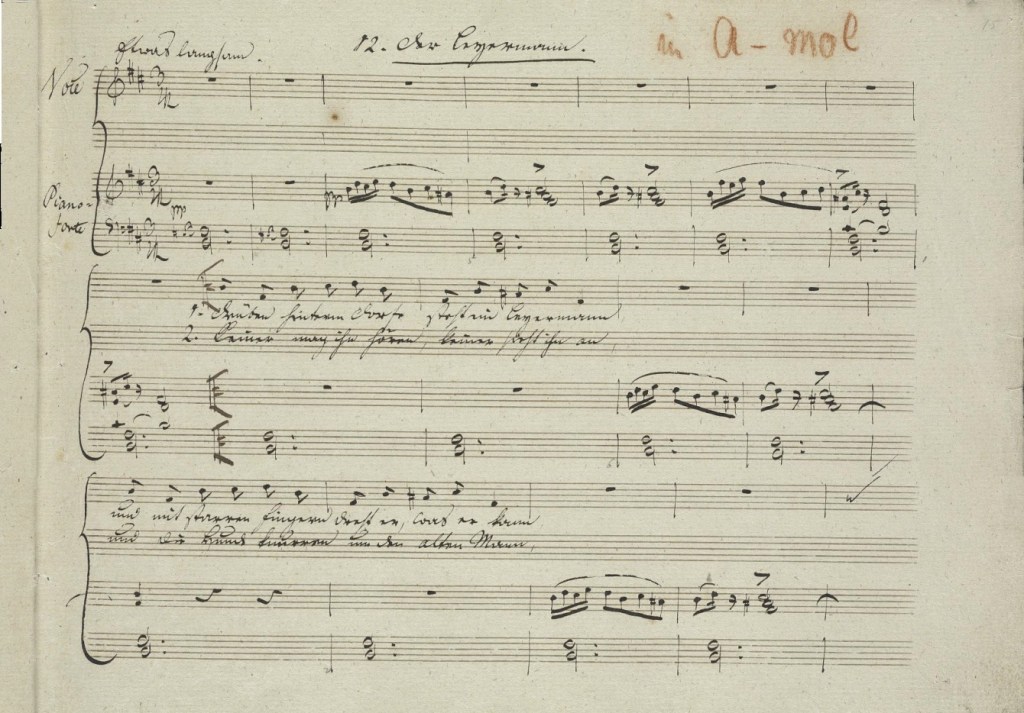 Etwas langsam.
12. Der Leyermann.
in A-mol
15
Voce
Piano-
forte
pp
pp
1. Drüben hinterm Dorfe steht ein Leyermann
2. Keiner mag ihn hören, keiner sieht ihn an,
und mit starren Fingern dreht er, was er kann
und die Hunde knurren um den alten Mann,